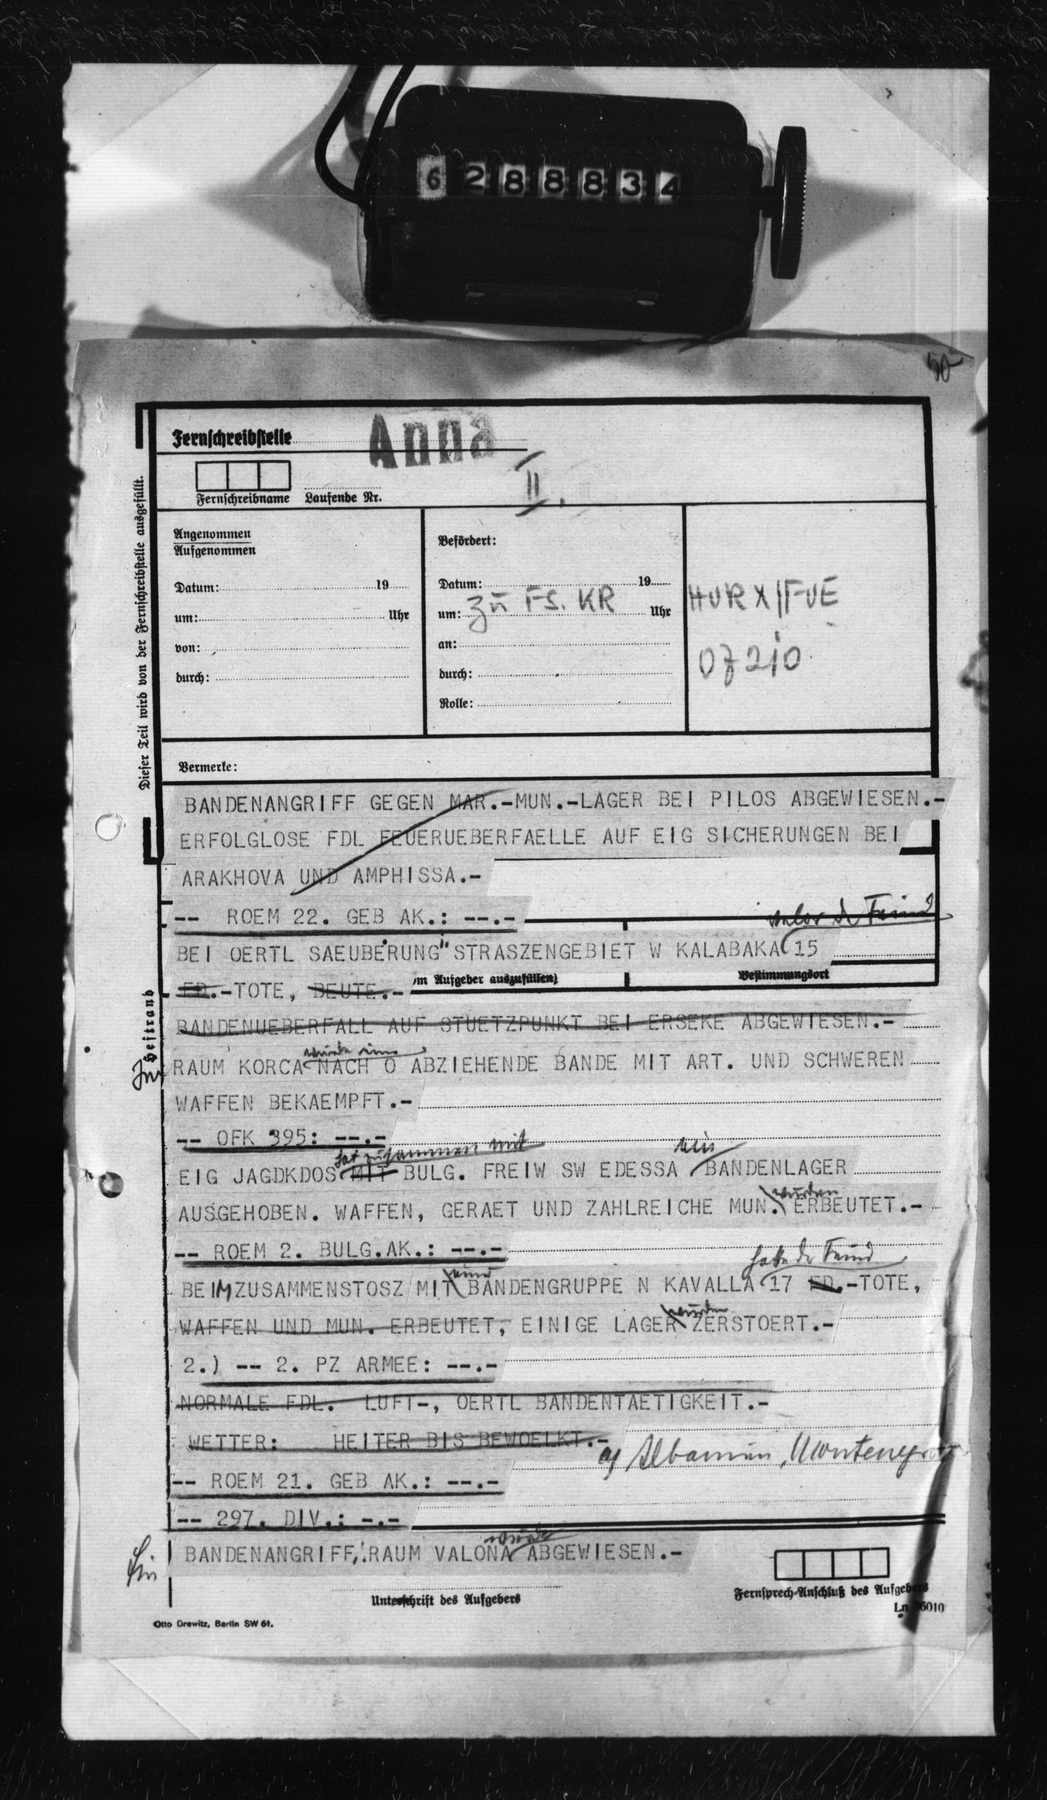 6288834
50
Fernschreibstelle
Anna
II.
Fernschreibname Laufende Nr.
Dieser Teil wird von der Fernschreibstelle ausgefüllt.
Angenommen
Aufgenommen
Datum: 19
um: Uhr
von:
durch:
Befördert:
Datum: 19
um: zu FS. KR Uhr
an:
durch:
Rolle:
HURX/FUE
07210
Vermerke:
BANDENANGRIFF GEGEN MAR.-MUN.-LAGER BEI PILOS ABGEWIESEN.-
ERFOLGLOSE FDL FEUERUEBERFAELLE AUF EIG SICHERUNGEN BEI
ARAKHOVA UND AMPHISSA.-
-- ROEM 22. GEB AK.: --.-
verlor der Feind
BEI OERTL SAEUBERUNG STRASZENGEBIET W KALABAKA 15
om Aufgeber auszufüllen) Bestimmungsort
FD.-TOTE, BEUTE.-
BANDENUEBERFALL AUF STUETZPUNKT BEI ERSEKE ABGEWIESEN.-
Heftrand
wurde eine
Im RAUM KORCA NACH O ABZIEHENDE BANDE MIT ART. UND SCHWEREN
WAFFEN BEKAEMPFT.-
-- OFK 395: --.-
hat zusammen mit ein
EIG JAGDKDOS MIT BULG. FREIW SW EDESSA BANDENLAGER
wurden
AUSGEHOBEN. WAFFEN, GERAET UND ZAHLREICHE MUN. ERBEUTET.-
-- ROEM 2. BULG.AK.: --.-
einer hatte der Feind
BEIM ZUSAMMENSTOSZ MIT BANDENGRUPPE N KAVALLA 17 FD.-TOTE,
wurden
WAFFEN UND MUN. ERBEUTET, EINIGE LAGER ZERSTOERT.-
2.) -- 2. PZ ARMEE: --.-
NORMALE FDL. LUFT-, OERTL BANDENTAETIGKEIT.-
WETTER: HEITER BIS BEWOELKT.-
a) Albanien, Montenegro
-- ROEM 21. GEB AK.: --.-
-- 297. DIV.: -.-
wurde
Ein BANDENANGRIFF, RAUM VALONA ABGEWIESEN.-
Unterschrift des Aufgebers
Fernsprech-Anschluß des Aufgebers
Otto Drewitz, Berlin SW 61.